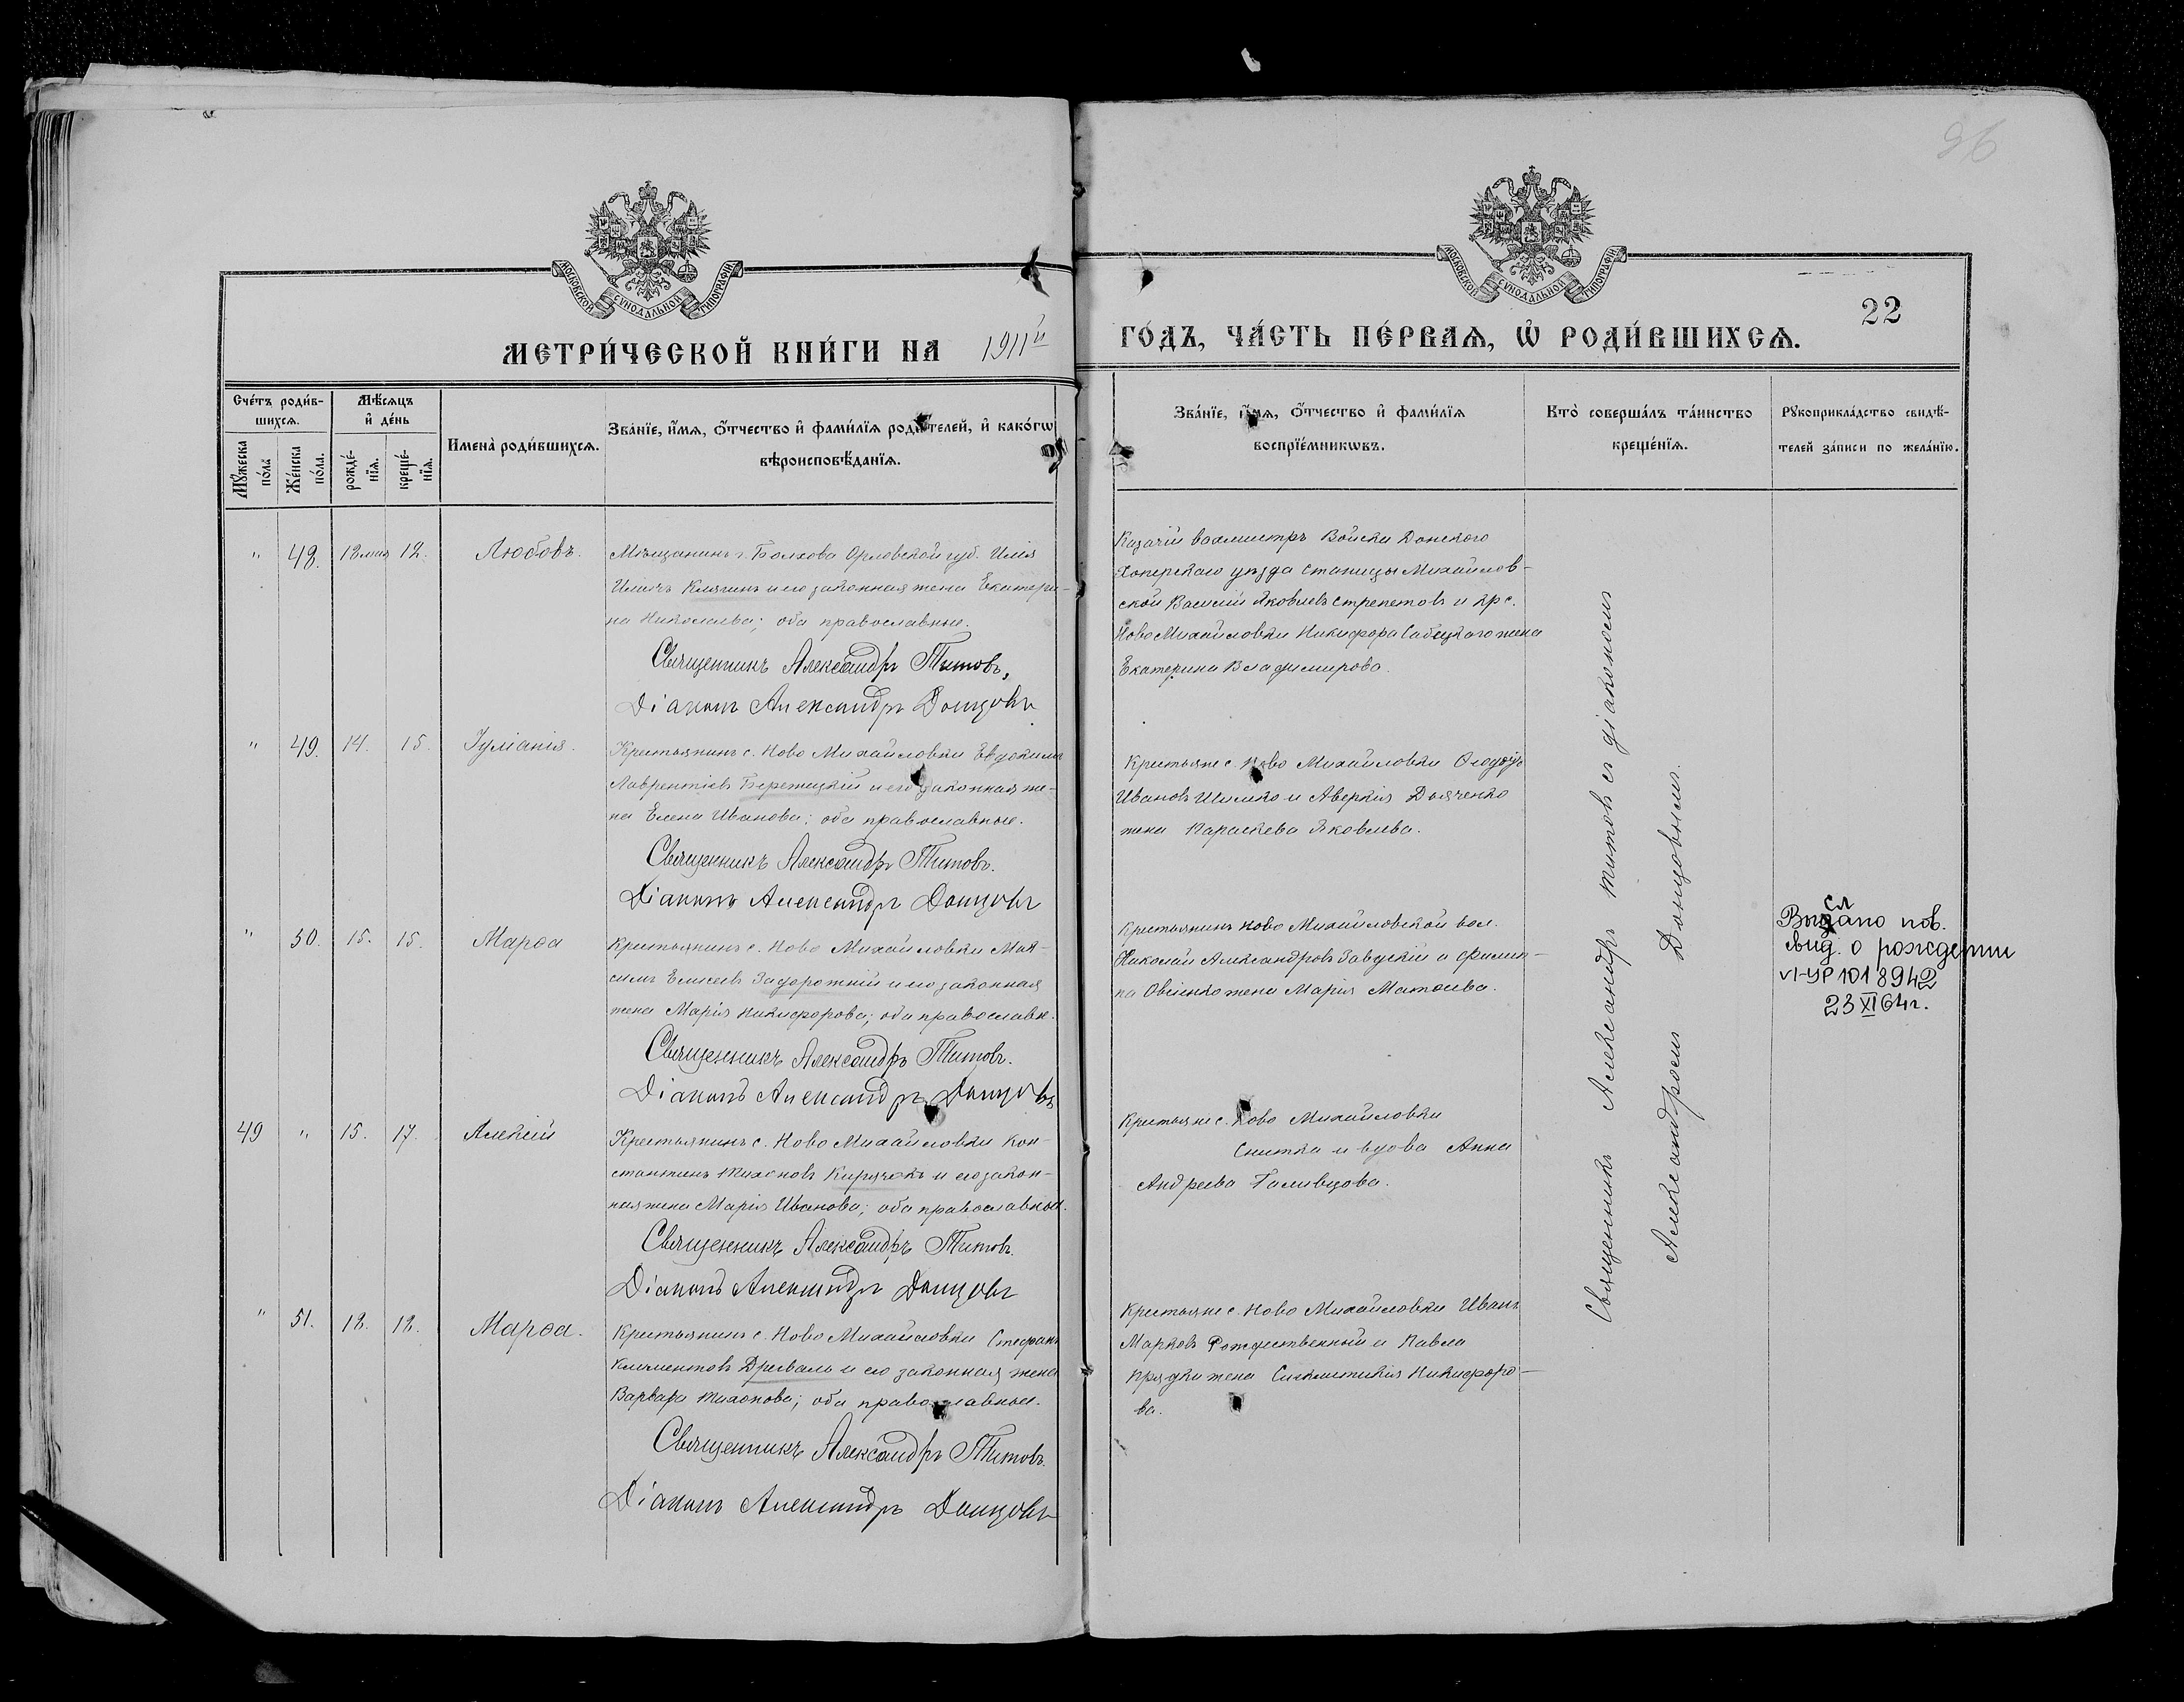 96
МОСКОВСКОЙ СѴНОДАЛЬНОЙ ТИПОГРАФІИ
МОСКОВСКОЙ СѴНОДАЛЬНОЙ ТИПОГРАФІИ
22
МЕТРИ́ЧЕСКОЙ КНИ́ГИ НА 1911й ГО́ДЪ, ЧА́СТЬ ПЕ́РВАѦ, Ѽ РОДИ́ВШИХСѦ.
Сче́тъ роди́в-
шихсѧ.
Мꙋ́жеска по́ла
Же́нска по́ла.
Мѣ́сѧцъ
и҆ де́нь
рожде́-
нїѧ.
креще́-
нїѧ.
Имена̀ роди́вшихсѧ.
Зва́нїе, и҆́мѧ, ѻ҆́тчество и҆ фами́лїѧ роди́телей, и҆ како́гѡ
вѣроисповѣ́данїѧ.
Зва́нїе, и҆́мѧ, ѻ҆́тчество и҆ фами́лїѧ
воспрїе́мникѡвъ.
Кто̀ соверша́лъ та́инство
креще́нїѧ.
Рꙋкоприкла́дство свидѣ́-
телей за́писи по жела́нїю.
" 48. 12 мая 12. Любовь.
Мѣщанинъ г. Болхова Орловской губ. Илія
Ильичъ Клягинъ и его законная жена Екатери-
на Николаева; оба православные.
Священникъ Александръ Титовъ,
Діаконъ Александръ Донцовъ
Казачій вахмистръ Войска Донского
Хоперскаго уѣзда станицы Михайлов-
ской Василій Яковлевъ Стрепетовъ и кр с.
Ново Михайловки Никифора Сабецкаго жена
Екатерина Владимирова.
" 49. 14. 15. Іуліанія.
Крестьянинъ с. Ново Михайловки Евдокимъ
Лаврентіевъ Бережецкій и его законная же-
на Елена Иванова; оба православные.
Священникъ Александръ Титовъ.
Діаконъ Александръ Донцовъ
Крестьяне с. Ново Михайловки
Ивановъ Шимко и Аверкія Дьяченко
жена Параскева Яковлева.
" 50. 15. 15. Марѳа
Крестьянинъ с. Ново Михайловки Мак-
симъ Елисеевъ Задорожній и его законная
жена Марія Никифорова; оба православн.
Священникъ Александръ Титовъ.
Діаконъ Александръ Донцовъ
Крестьянинъ Ново Михайловской вол.
Николай Александровъ Завускій и Филип-
па Овсіенко жена Марія Матѳеева.
сл
Выдано пов.
свид. о рождении
VI-УР 1018942
23 XI 64 г.
49 " 15. 17. Алексій
Крестьянинъ с. Ново Михайловки Кон-
стантинъ Тихоновъ Кирячекъ и его закон-
ная жена Марія Иванова; оба православные.
Священникъ Александръ Титовъ.
Діаконъ Александръ Донцовъ
Крестьяне с. Ново Михайловки
Снитка и вдова Анна
Андреева Галивцова.
" 51. 18. 18. Марѳа.
Крестьянинъ с. Ново Михайловки Стефанъ
Климентовъ Древаль и его законная жена
Варвара Тихонова; оба православные.
Священникъ Александръ Титовъ.
Діаконъ Александръ Донцовъ
Крестьяне с. Ново Михайловки Иванъ
Марковъ Рождественный и Павла
Прядки жена Синклитикія Никифоро-
ва.
Священникъ Александръ Титовъ съ діакономъ
Александромъ Донцовымъ.